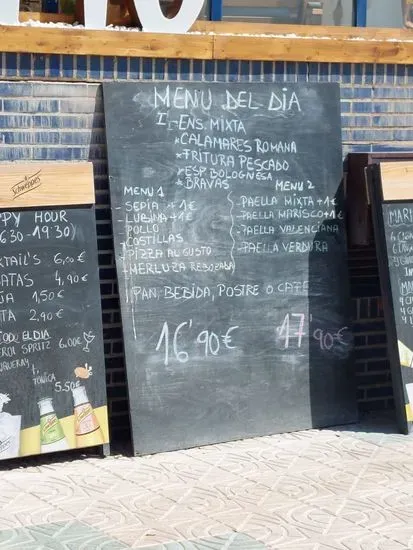 MENU DEL DIA
I- ENS. MIXTA
*CALAMARES ROMANA
*FRITURA PESCADO
*ESP. BOLOGNESA
*BRAVAS
MENU 1
-SEPIA +1€
-LUBINA +1€
-POLLO
-COSTILLAS
-PIZZA AL GUSTO
-MERLUZA REBOZADA
MENU 2
-PAELLA MIXTA +1€
-PAELLA MARISCO +1€
-PAELLA VALENCIANA
-PAELLA VERDURA
PAN, BEBIDA, POSTRE O CAFÉ
16'90€
17'90€
Schweppes
PY HOUR
6:30 - 19:30)
TAIL'S 6,00€
ATAS 4,90€
JA 1,50€
TA 2,90€
EL DIA
EROL SPRITZ 6.00€
QUERAY
TONICA
5.50€
MAR